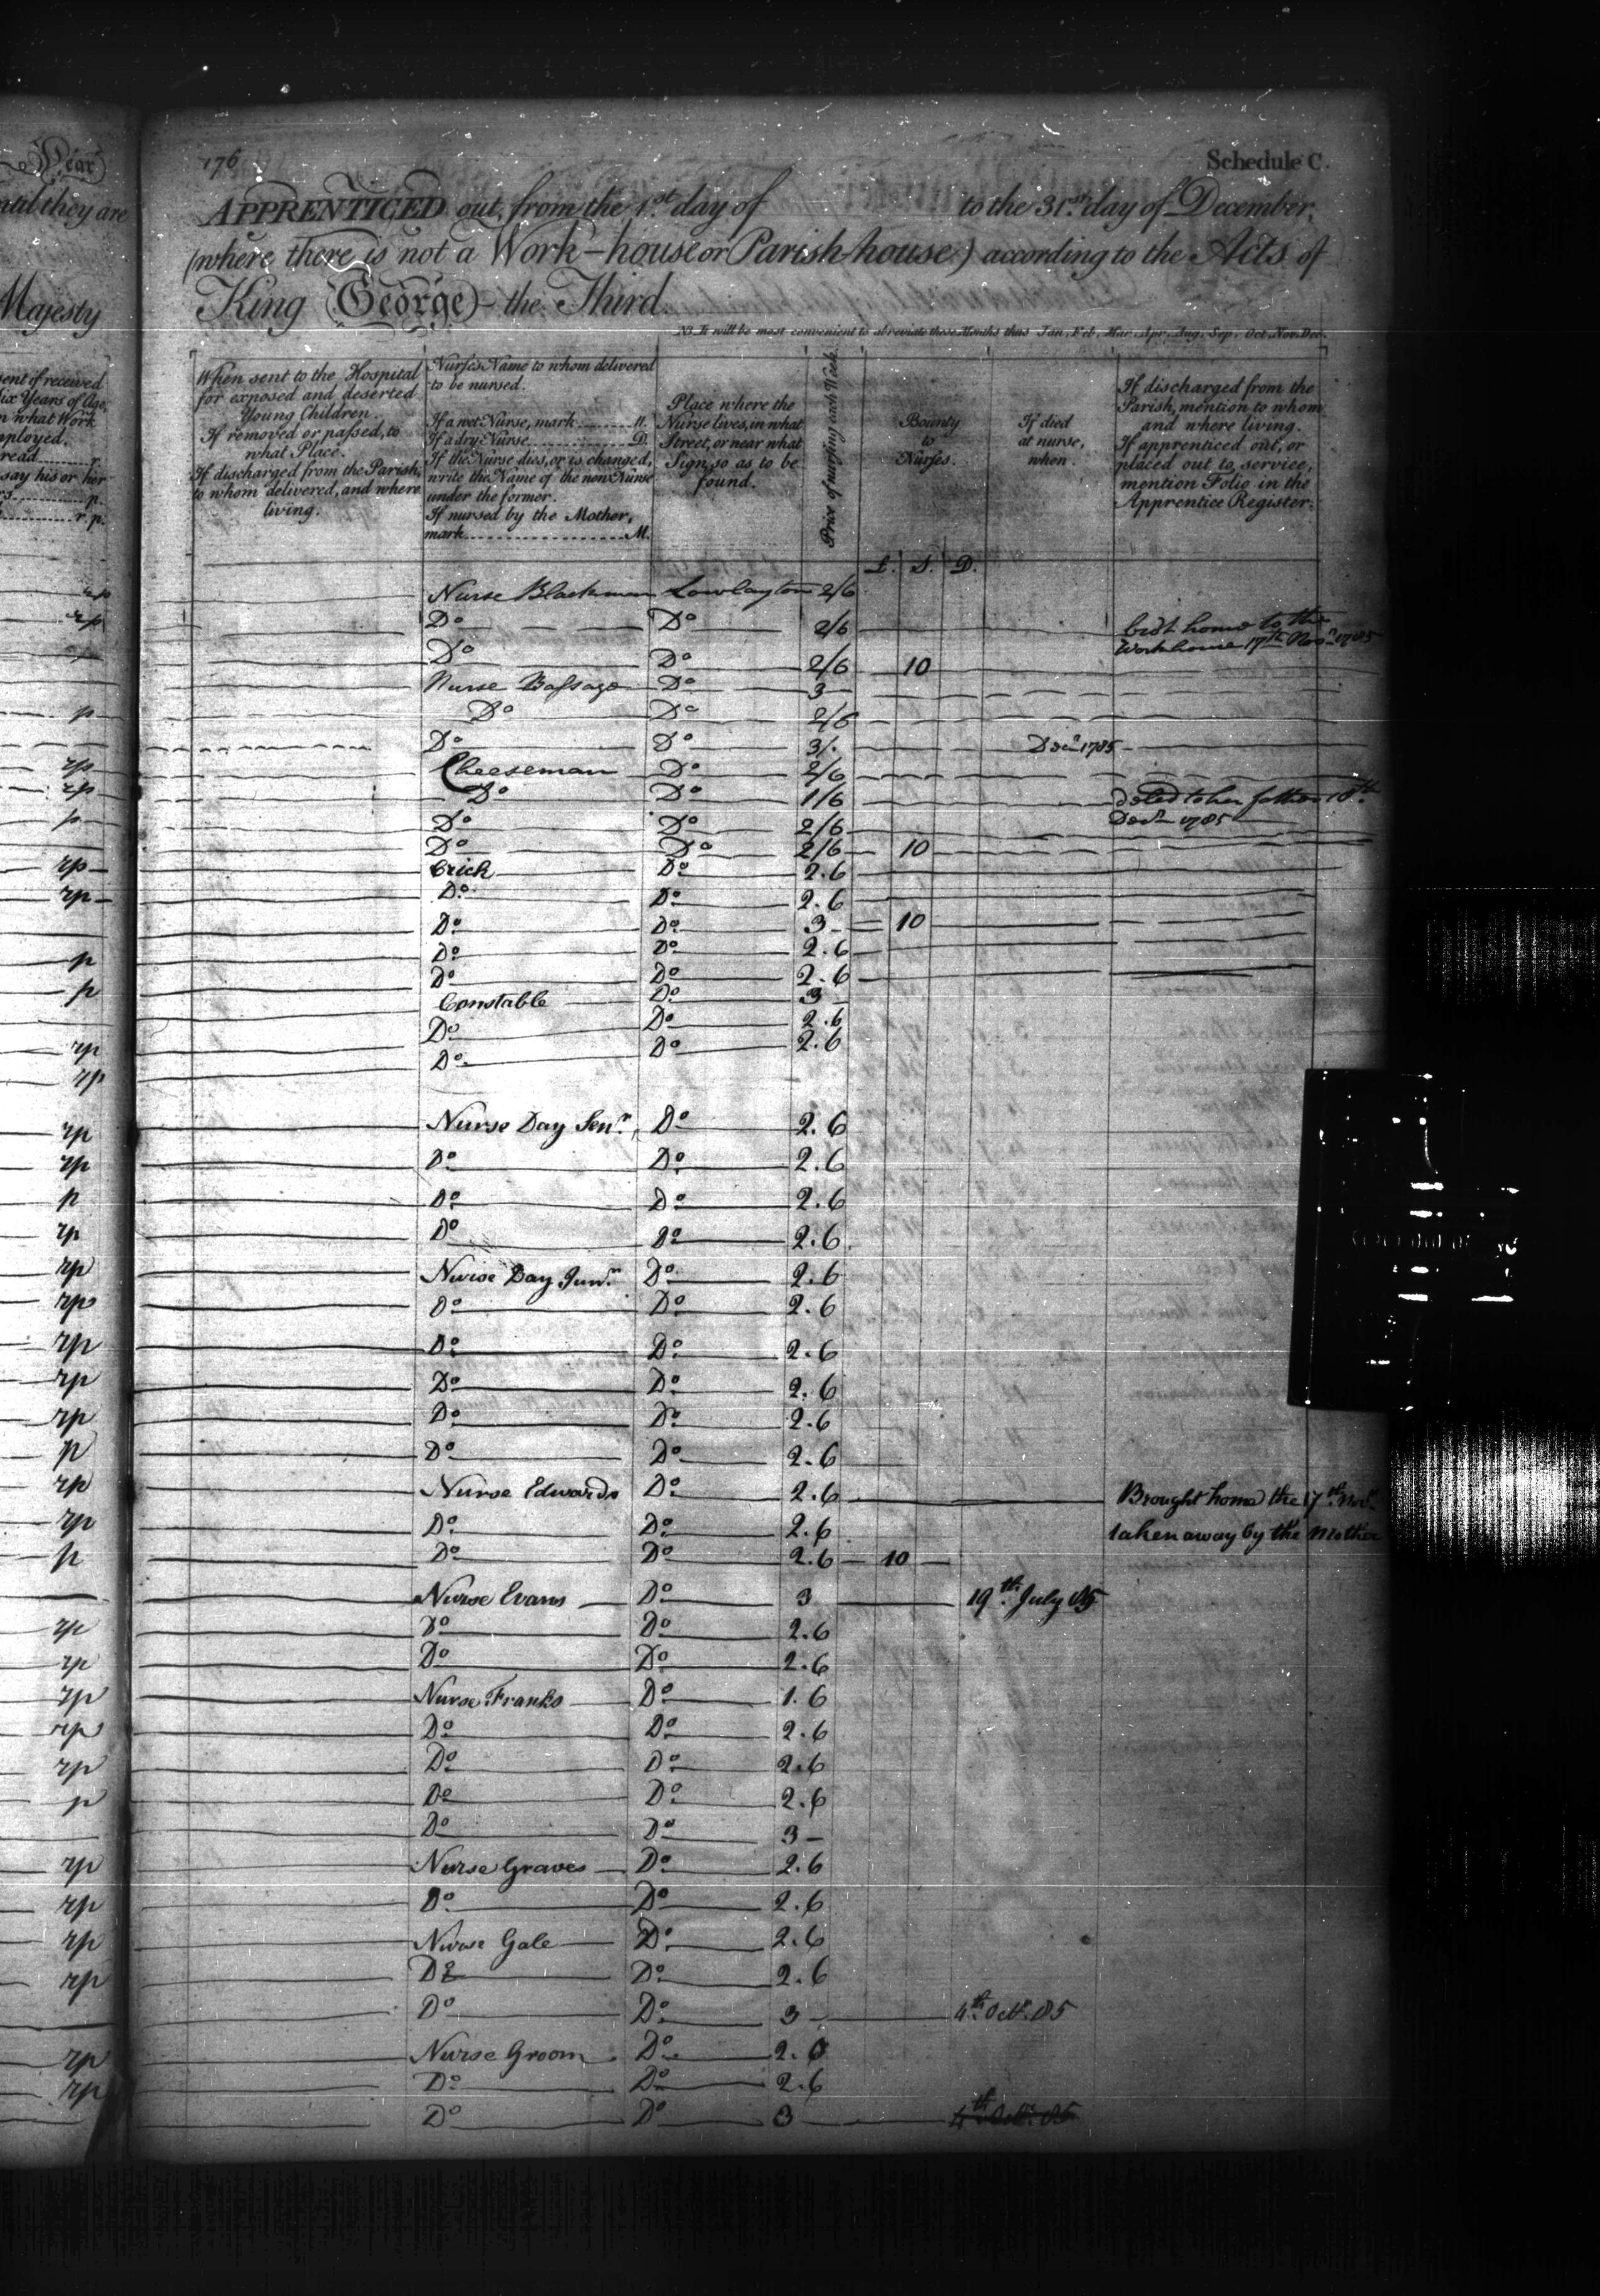 176
Schedule C.
APPRENTICED out, from the 1st day of to the 31st day of December,
(where there is not a Work-house or Parish house) according to the Acts of
King George the Third.
NB. It will be most convenient to abreviate those Months thus Jan, Feb, Mar, Apr, Aug, Sep, Oct, Nov, Dec.
Year
until they are
Majesty
sent if received
six Years of Age,
in what Work
employed.
read r.
say his or her
p.
r.p.
When sent to the Hospital
for exposed and deserted
Young Children.
If removed or passed, to
what Place.
If discharged from the Parish,
to whom delivered, and where
living.
Nurse's Name to whom delivered
to be nursed.
If a wet Nurse, mark W.
If a dry Nurse D.
If the Nurse dies, or is changed,
write the Name of the new Nurse
under the former.
If nursed by the Mother,
mark M.
Place where the
Nurse lives, in what
Street, or near what
Sign, so as to be
found.
Price of nursing each Week.
Bounty
to
Nurses.
If died
at nurse,
when.
If discharged from the
Parish, mention to whom
and where living.
If apprenticed out, or
placed out to service,
mention Folio in the
Apprentice Register.
£. S. D.
rp Nurse Blackman Lowlayton 2/6
rp Do Do 2/6 brot home to the
Workhouse 17th Novr 1785
Do Do 2/6 10
Nurse Bassage Do 3
p Do Do 2/6
Do Do 3/. Decr 1785
rp Cheeseman Do 2/6
rp Do Do 1/6 deled to her father 18th
Decr 1785
p Do Do 2/6
Do Do 2/6 10
rp Crick Do 2.6
rp Do Do 2.6
Do Do 3 10
p Do Do 2.6
p Do Do 2.6
Constable Do 3
rp Do Do 2.6
rp Do Do 2.6
rp Nurse Day Senr Do 2.6
rp Do Do 2.6
p Do Do 2.6
rp Do Do 2.6
rp Nurse Day Junr Do 2.6
rp Do Do 2.6
rp Do Do 2.6
rp Do Do 2.6
rp Do Do 2.6
p Do Do 2.6
rp Nurse Edwards Do 2.6 Brought home the 17th Novr
rp Do Do 2.6 taken away by the Mother
p Do Do 2.6 10
Nurse Evans Do 3 19th July 85
rp Do Do 2.6
rp Do Do 2.6
rp Nurse Franks Do 1.6
rp Do Do 2.6
rp Do Do 2.6
p Do Do 2.6
Do Do 3
rp Nurse Graves Do 2.6
rp Do Do 2.6
rp Nurse Gale Do 2.6
rp Do Do 2.6
Do Do 3 4th Octr 85
rp Nurse Groom Do 2.0
rp Do Do 2.6
Do Do 3 4th Octr 85